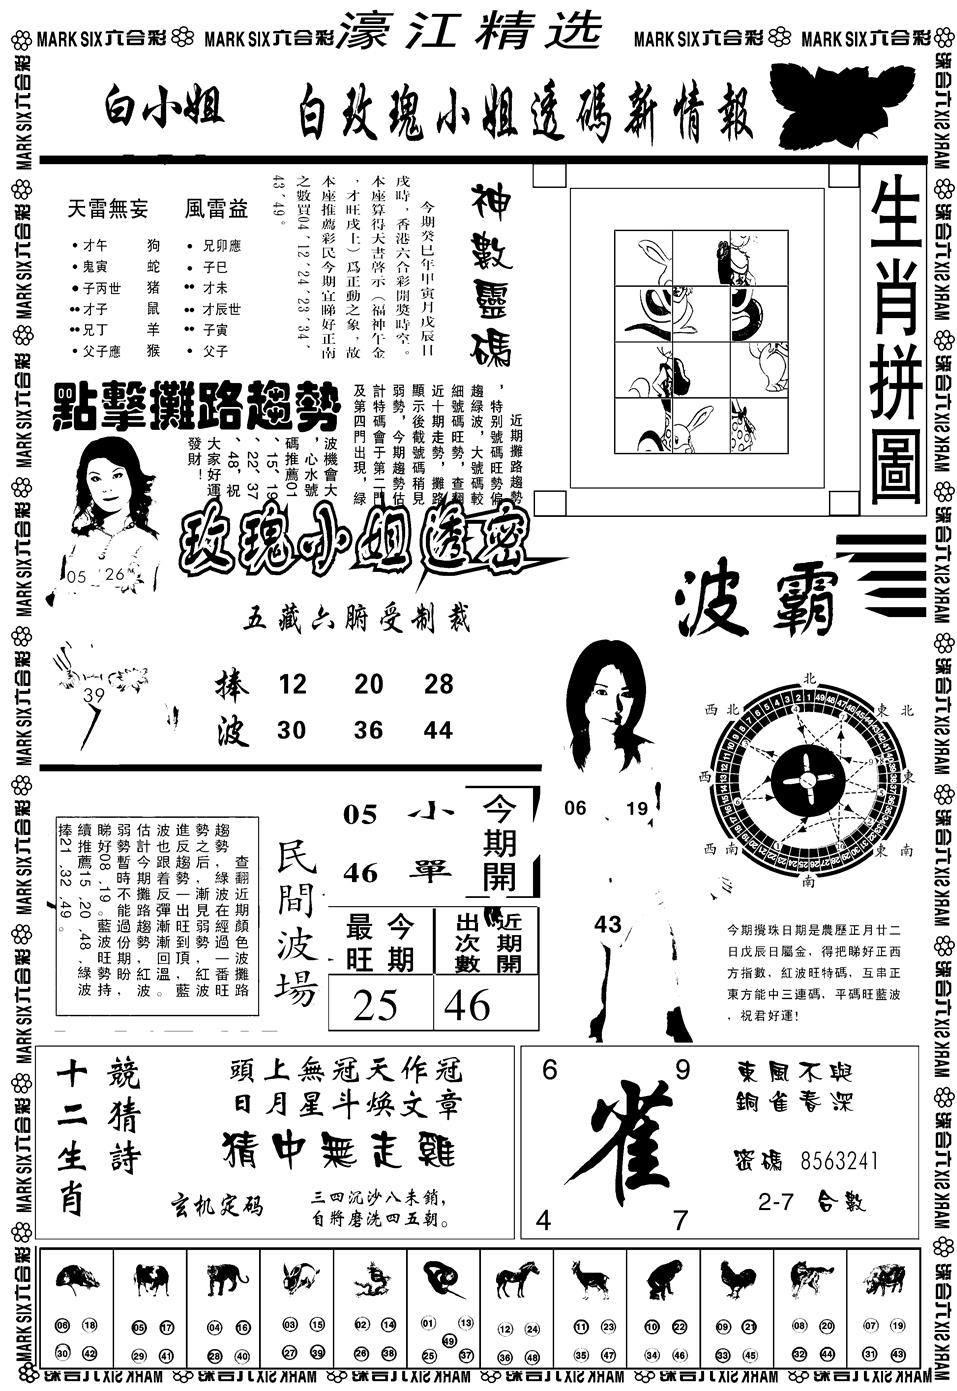 MARK SIX六合彩
MARK SIX六合彩
濠江精选
MARK SIX六合彩
MARK SIX六合彩
白小姐
白玫瑰小姐透碼新情報
天雷無妄
風雷益
才午 狗
鬼寅 蛇
子丙世 豬
才子 鼠
兄丁 羊
父子應 猴
兄卯應
子巳
才未
才辰世
子寅
父子
神數靈碼
今期癸巳年甲寅月戊辰日
戌時，香港六合彩開獎時空。
本座算得天書啓示（福神午金
，才旺戌上）爲正動之象，故
本座推薦彩民今期宜睇好正南
之數買04，12，24，23，34，
43，49。
生肖拼圖
點擊攤路趨勢
近期攤路趨勢
，特別號碼旺勢偏
趨綠波，大號碼較
細號碼旺勢，查翻
近十期走勢，攤路
顯示後截號碼稍見
弱勢，今期趨勢估
計特碼會于第二門
及第四門出現，綠
波機會大
，心水號
碼推薦01
、15、19
、22、37
、48、祝
大家好運
發財！
05 26
39
玫瑰小姐透密
五藏六腑受制裁
捧 12 20 28
波 30 36 44
波霸
06 19
43
北
東北
東
東南
南
西南
西
西北
今期攪珠日期是農歷正月廿二
日戊辰日屬金，得把睇好正西
方指數，紅波旺特碼，互串正
東方能中三連碼，平碼旺藍波
，祝君好運！
查翻近期顏色波攤路
趨勢，綠波在經過一番旺
勢之后，漸見弱勢，紅波
進反趨勢一出旺到頂，藍
波也跟着反彈漸漸回溫。
估計今期攤路趨勢，紅波
弱勢暫時不能過份期盼，
睇好08，19。藍波旺勢持
續推薦15，20，48，綠波
捧21，32，49。
民間波場
05 小
46 單
今期開
今期最旺
近期開出次數
25
46
競猜詩
十二生肖
頭上無冠天作冠
日月星斗煥文章
猜中無走雞
玄机定码
三四沉沙八未銷，
自將磨洗四五朝。
6 9
雀
4 7
東風不與
銅雀春深
密碼 8563241
2-7 合數
06 18 30 42
05 17 29 41
04 16 28 40
03 15 27 39
02 14 26 38
01 13 49 25 37
12 24 36 48
11 23 35 47
10 22 34 46
09 21 33 45
08 20 32 44
07 19 31 43